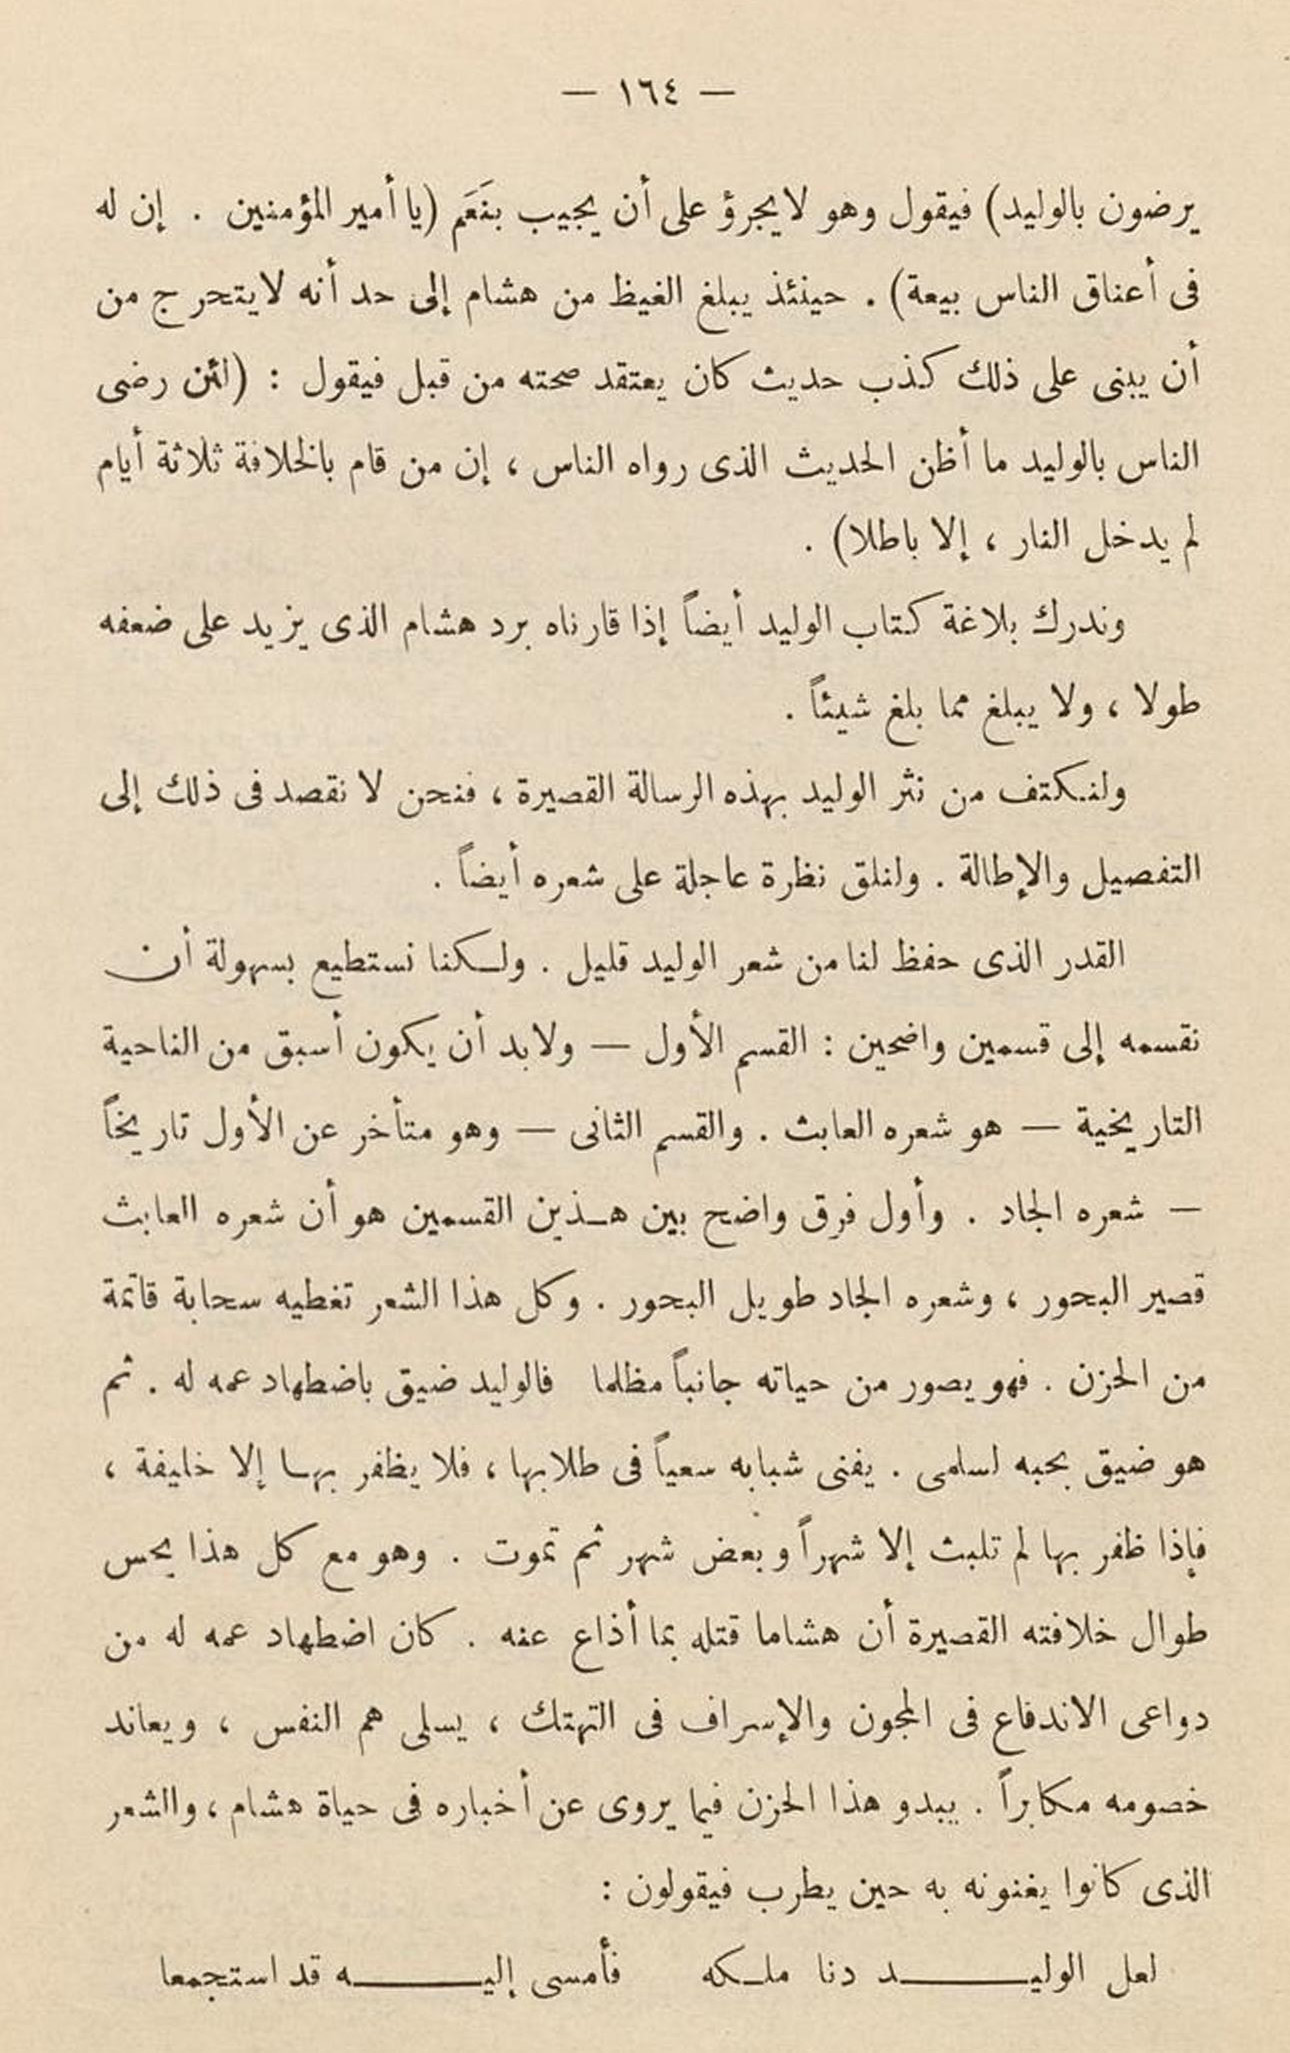 — ١٦٤ —
يرضون بالوليد) فيقول وهو لا يجرؤ على أن يجيب بنَعَم (يا أمير المؤمنين . إن له
فى أعناق الناس بيعة) . حينئذ يبلغ الغيظ من هشام إلى حد أنه لا يتحرج من
أن يبنى على ذلك كذب حديث كان يعتقد صحته من قبل فيقول : (لئن رضى
الناس بالوليد ما أظن الحديث الذى رواه الناس ، إن من قام بالخلافة ثلاثة أيام
لم يدخل النار ، إلا باطلا) .
وندرك بلاغة كتاب الوليد أيضاً إذا قارناه برد هشام الذى يزيد على ضعفه
طولا ، ولا يبلغ مما بلغ شيئاً .
ولنكتف من نثر الوليد بهذه الرسالة القصيرة ، فنحن لا نقصد فى ذلك إلى
التفصيل والإطالة . ولنلق نظرة عاجلة على شعره أيضاً .
القدر الذى حفظ لنا من شعر الوليد قليل . ولكنا نستطيع بسهولة أن
نقسمه إلى قسمين واضحين : القسم الأول — ولابد أن يكون أسبق من الناحية
التاريخية — هو شعره العابث . والقسم الثانى — وهو متأخر عن الأول تاريخاً
— شعره الجاد . وأول فرق واضح بين هذين القسمين هو أن شعره العابث
قصير البحور ، وشعره الجاد طويل البحور . وكل هذا الشعر تغطيه سحابة قاتمة
من الحزن . فهو يصور من حياته جانباً مظلما فالوليد ضيق باضطهاد عمه له . ثم
هو ضيق بحبه لسلمى . يفنى شبابه سعياً فى طلابها ، فلا يظفر بها إلا خليفة ،
فإذا ظفر بها لم تلبث إلا شهراً وبعض شهر ثم تموت . وهو مع كل هذا يحس
طوال خلافته القصيرة أن هشاما قتله بما أذاع عنه . كان اضطهاد عمه له من
دواعى الاندفاع فى المجون والإسراف فى التهتك ، يسلى هم النفس ، ويعاند
خصومه مكابراً . يبدو هذا الحزن فيما يروى عن أخباره فى حياة هشام ، والشعر
الذى كانوا يغنونه به حين يطرب فيقولون :
لعل الوليـــد دنا ملكه فأمسى إليـــه قد استجمعا